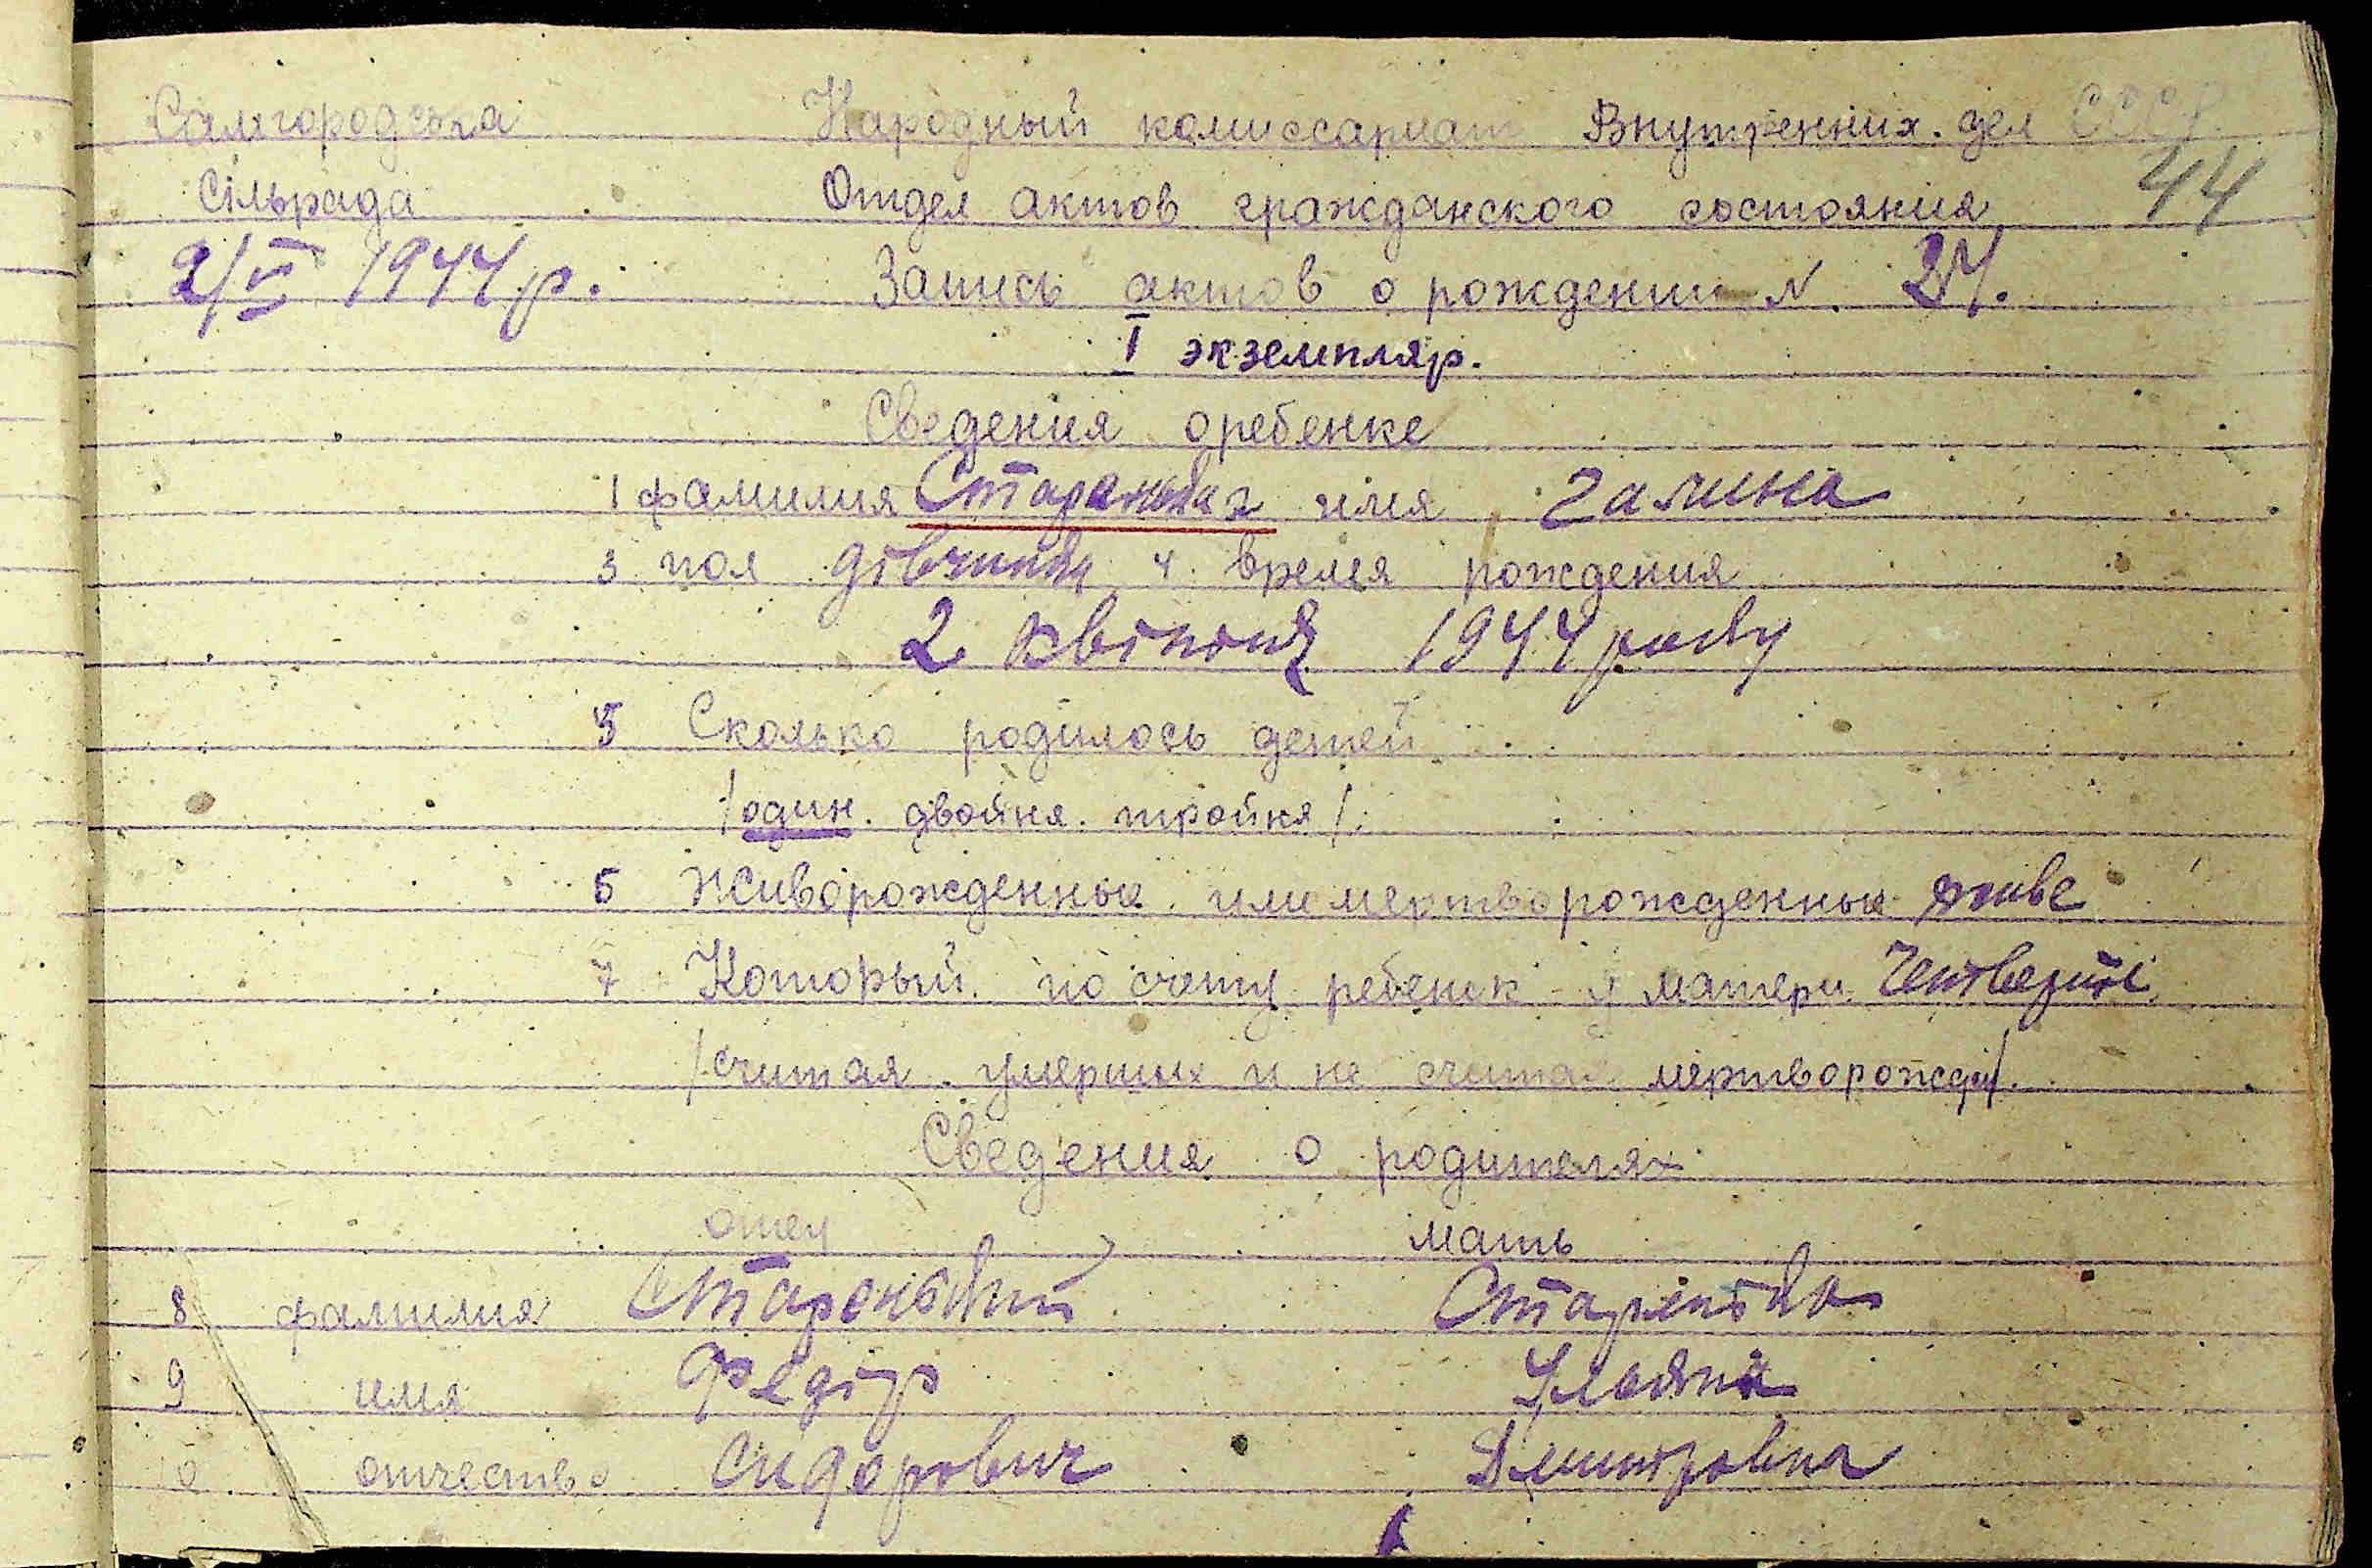 Самгородська Народный комиссариат Внутренних. дел СССР
Сільрада Отдел актов гражданского состояния 44
2/VI 1944 р. Запись актов о рождении N. 27.
I экземпляр.
Сведения о ребенке
1 фамилия имя Галина
3 пол дівчина 4. время рождения
2 квітня 1944 року
5 Сколько родилось детей
/один. двойня. тройня/.
6 Живорожденные или мертворожденные живе
7 Который по счету ребенок у матери Четверті
/считая умерших и не считая мертворожд/.
Сведения о родителях
отец мать
8 фамилия Старенький Старенька
9 имя Федір Уляна
10 отчество Сидорович Дмитровна